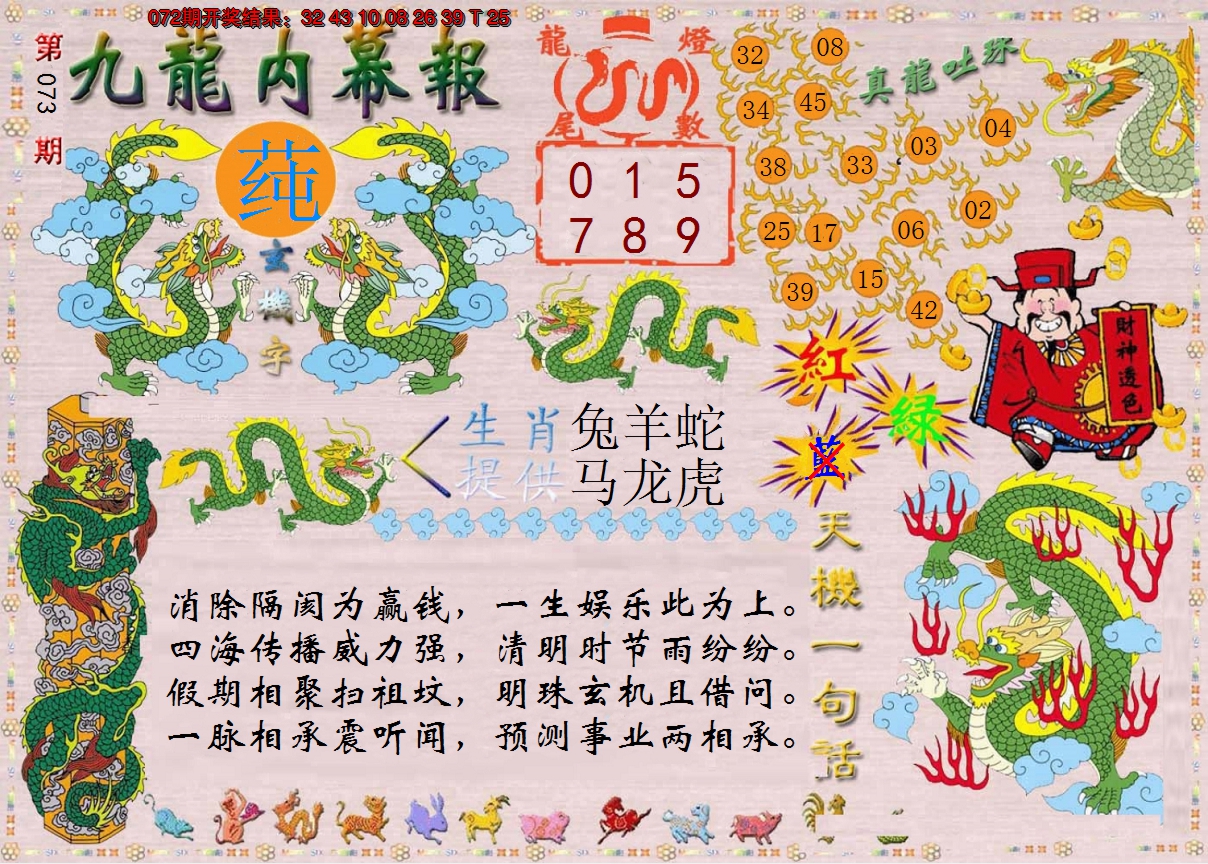 072期开奖结果：32 43 10.08 26 39 T 25
第073期
九龍内幕報
莼
玄機字
龍燈尾數
0 1 5
7 8 9
真龍吐珠
32 08
34 45
38 33 03 04
25 17 06 02
39 15 42
財神透色
紅
綠
藍
生肖 兔羊蛇
提供 马龙虎
消除隔阂为赢钱，一生娱乐此为上。
四海传播威力强，清明时节雨纷纷。
假期相聚扫祖坟，明珠玄机且借问。
一脉相承震听闻，预测事业两相承。
天機一句話